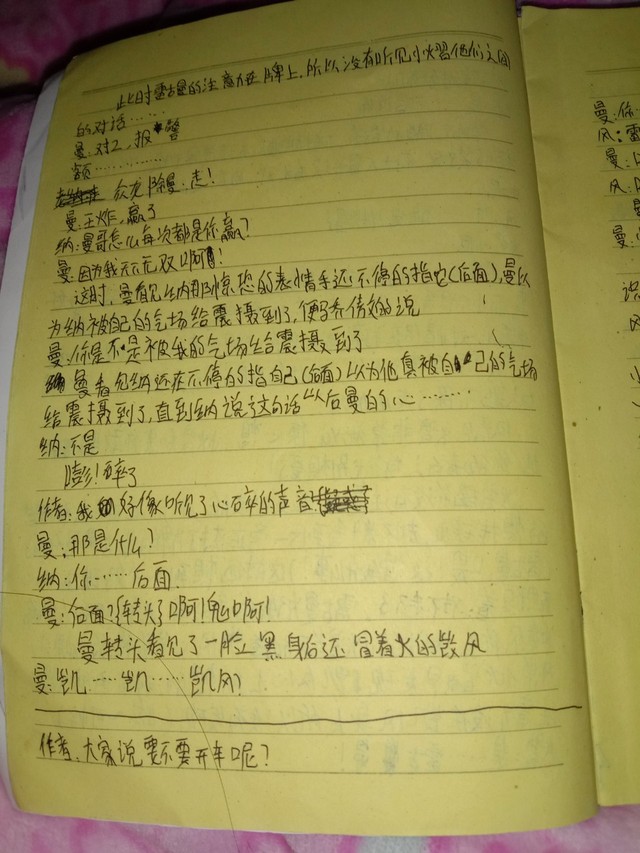 此时雷古曼的注意力在牌上,所以没有听见小火習他们之间
的对话……
曼:对2,报警
额…………
众龙除曼:走!
曼:王炸,赢了
纳:曼哥怎么每次都是你赢?
曼:因为我天下无双啊!
这时,曼看见纳那惊恐的表情手还不停的指它(后面),曼以
为纳被自己的气场给震摄到了,便矫情的说
曼:你是不是被我的气场给震摄到了
曼看见纳还在不停的指自己(后面)以为他真被自己的气场
给震摄到了,直到纳说了这句话以后曼的心………
纳:不是
嘭!碎了
作者:我好像听见了心碎的声音
曼:那是什么?
纳:你……后面
曼:后面?(转头了)啊!鬼啊!
曼转头看见了一脸黑身后还冒着火的凯风
曼:凯……凯……凯风?
作者:大家说要不要开车呢?
曼:你
风:雷
曼:
风:
曼:
说
风